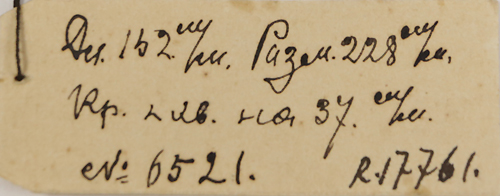 Дл. 152 см/м. Разм. 228 см/м.
Кр. лив. на 37. см/м.
№ 6521. R.17761.